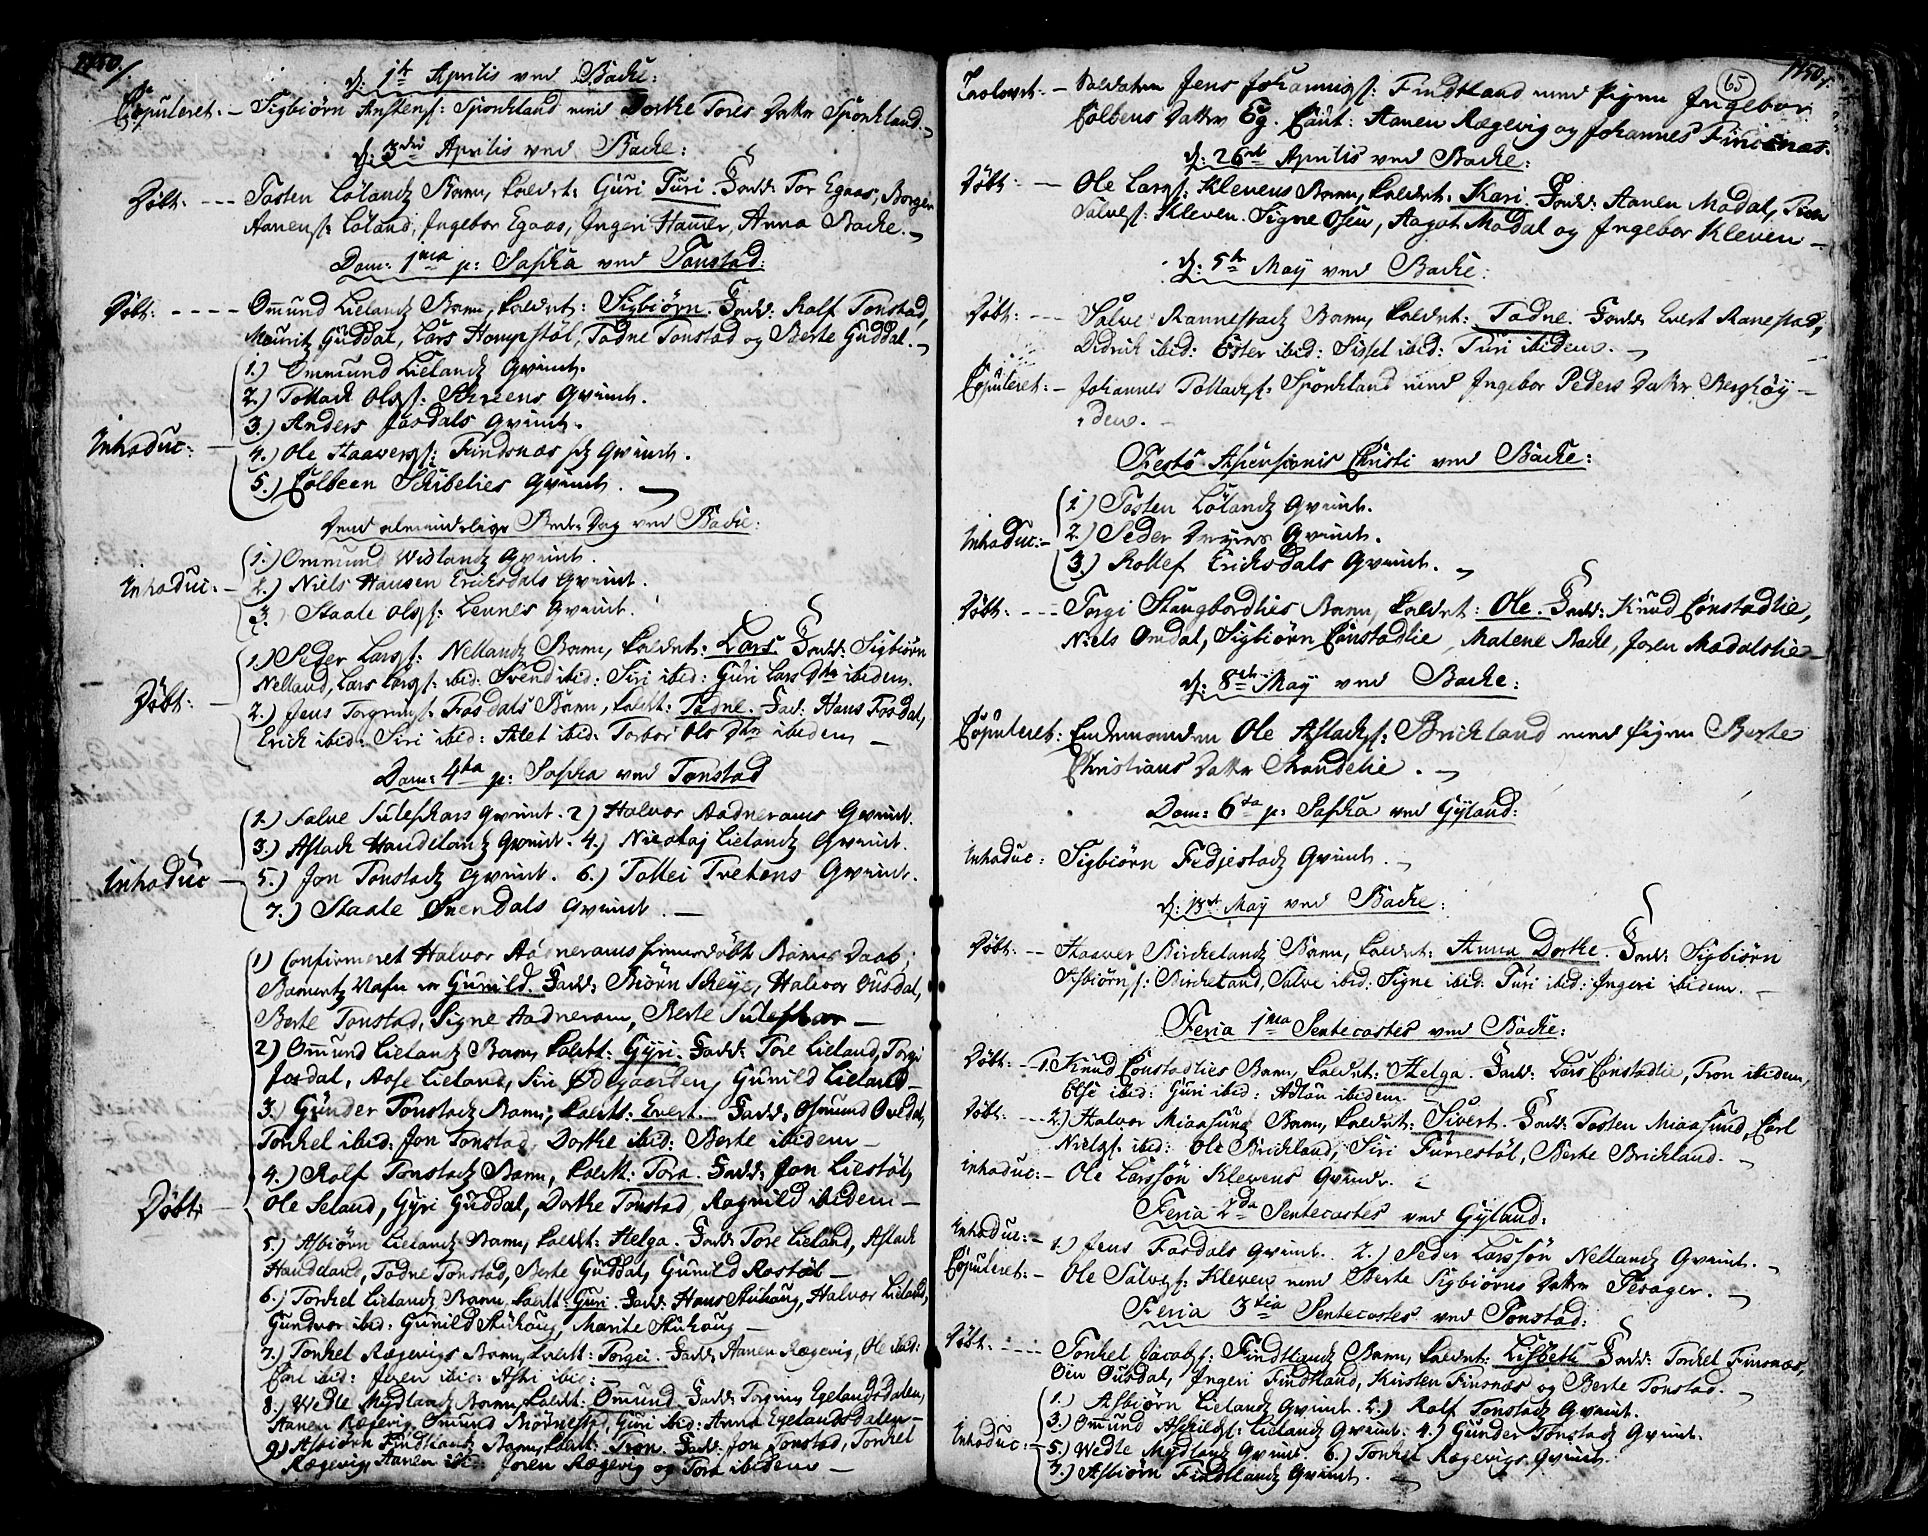 1750.
d: 1te Aprilis ved Backe:
Copuleret. – Sigbiörn Anstens: Sponkland med Dorthe Tores Datter Sponkland.
d: 3die Aprilis ved Backe:
Döbt: --- Tosten Lölandz Barn, kaldet: Guri Turi. Fadd: Tor Egaas, Borger
Aanens: Löland, Ingebor Egaas, Ingeri Hauer, Anna Backe.
Dom: 1ma p: Pascha ved Tonstad:
Döbt: ---- Ommund Lielandz Barn, kaldet: Sigbiörn. Fadd: Rolf Tonstad,
Mauritz Guddal, Lars Hompstöl, Todne Tonstad og Berte Guddal.
1.) Ommund Lielandz Qvinde.
2.) Tollack Ols: Skreens Qvinde.
3.) Anders Josdals Qvinde.
Introduc: – 4.) Ole Staavers: Findsnæs Qvinde.
5.) Colbeen Schibelies Qvinde.
Dend almindelige Bede-Dag ved Backe:
1.) Ommund Widlandz Qvinde.
Introduc: – 2.) Niels Hansen Ericksdals Qvinde.
3.) Staale Ols: Lennes Qvinde.
1.) Peder Lars: Nellandz Barn, kaldet: Lars Fadd: Sigbiörn
Nelland, Lars Lars: ibid: Svend ibid: Siri ibid: Guri Lars Dtr ibidem.
Döbt: – 2.) Jens Torgrims: Fosdals Barn, kaldet: Todne. Fad: Hans Fosdal,
Erick ibid: Siri ibid: Alet ibid: Torbor Ols Dtr ibidem –
Dom: 4ta p: Pascha ved Tonstad
1.) Salve Suleskars Qvinde. 2) Halvor Aadnerams Qvinde.
3.) Aslack Haudelandz Qvinde. 4.) Nicolaj Lielandz Qvinde.
Introduc – 5.) Jon Tonstadz Qvinde. 6.) Tollei Tvetens Qvinde.
7.) Staale Svendals Qvinde. –
1) Confirmeret Halvor Aadnerams hiemmedöbte Barns Daab,
Barnetz Nafn er Gunild. Fadd: Biörn Skeije, Halvor Ousdal,
Berte Tonstad, Signe Aadneram, Berte Suleskar –
2) Ommund Lielandz Barn, kaldet: Gyri. Fadd: Tore Lieland, Torgi
Josdal, Aase Lieland, Siri Ödegaarden, Gunild Lieland –
3.) Gunder Tonstadz Barn, kaldet: Evert. Fadd: Osmund Ovedal,
Tonkel ibid: Jon Tonstad, Dorthe ibid: Berte ibidem –
4.) Rolf Tonstadz Barn, kaldet: Tora. Fadd: Jon Liestöl,
Döbt: Ole Seland, Gyri Guddal, Dorthe Tonstad, Ragnild ibidem –
5.) Asbiörn Lielandz Barn, kaldet: Helga. Fadd: Tore Lieland, Aslack
Haudeland, Todne Tonstad, Berte Guddal, Gunild Rostöl –
6.) Tonkel Lielandz Barn, kaldet: Guri. Fadd: Hans Stuhaug, Halvor Lieland,
Gundvor ibid: Gunild Stuhaug, Marite Stuhaug –
7.) Tonkel Rægevigs Barn, kaldet: Torgei. Fadd: Aanen Rægevig, Ole ibid:
Carl ibid: Joren ibid: Astri ibid:
8.) Wedle Mydlandz Barn, kaldet: Ommund. Fadd: Torgrim Egelandsdalen,
Aanen Rægevig, Omund Biörnestad, Guri ibid: Anna Egelandsdalen –
9.) Asbiörn Findtlandz Barn, kaldet: Tron. Fadd: Jon Tonstad, Tonkel
Rægevig, Aanen ibid: Joren Rægevig og Tora ibidem –
65
1750.
Trolovet. – Soldaten Jens Johannis: Findtland med Pigen Ingebor
Colbens Datter Eg. Caut: Aanen Rægevig og Johannes Finsnæs.
d: 26de Aprilis ved Backe:
Döbt: – Ole Lars: Klevens Barn, kaldet: Kari. Fadd: Aanen Modal,
Salves: Kleven. Signe Osen, Aagot Modal og Ingebor Kleven –
d: 5te May ved Backe:
Döbt: --- Salve Rannestadz Barn, kaldet: Todne. Fadd: Evert Ranestad,
Didrich ibid: Ester ibid: Sissel ibid: Turi ibidem.
Copuleret: – Johannes Tollacks: Sponkland med Ingebor Peders Datter Berghöy –
idem. –
Festo Ascensionis Christi ved Backe:
1.) Tosten Lölandz Qvinde.
Introduc: – 2.) Peder Qvinde.
3.) Rollef Ericksdals Qvinde.
Döbt: --- Torgi Stangbordlies Barn, kaldet: Ole. Fadd: Knud Constadlie,
Niels Omdal, Sigbiörn Constadlie, Malene Backe, Joren Modalslie –
d: 8de May ved Backe:
Copuleret: Enckemanden Ole Aslacks: Brickland med Pigen Berte
Christians Datter Strandelie.
Dom: 6ta p: Pascha ved Gyland:
Introduc: Sigbiörn Fedjestadz Qvinde.
d: 13de May ved Backe:
Döbt: -- Staaver Birckelandz Barn, kaldet: Anna Dorthe. Fadd: Sigbiörn
Asbiörns: Birckeland, Salve ibid: Signe ibid: Turi ibid: Ingeri ibidem. –
Feria 1ma Pentecostes ved Backe:
Döbt: -- 1. Knud Constadlies Barn, kaldet: Helga. Fadd: Lars Constadlie, Tron ibidem,
Else ibid: Guri ibid: Adlau ibidem
Döbt: --- 2.) Halvor Miaasunds Barn, kaldet: Sivert. Fadd: Tosten Miaasund, Carl
Niels: ibid: Ole Brickland, Siri Furrestöl, Berte Brickland.
Introduc: – Ole Larssön Klevens Qvinde.
Feria 2da Pentecostes ved Gyland:
Introduc: – 1.) Jens Fosdals Qvinde. 2.) Peder Larssön Nellandz Qvinde.
Copuleret: – Ole Salves: Kleven med Berte Sigbiörns Datter Sesager.
Feria 3tia Pentecostes ved Tonstad:
Döbt: ---- Tonkel Jacobs: Findtlandz Barn, kaldet: Lisbeth. Fadd: Tonkel Finsnæs,
Oin Ousdal, Ingeri Findtland, Kirsten Finsnæs og Berte Tonstad.
1.) Asbiörn Lielandz Qvinde. 2.) Rolf Tonstadz Qvinde.
3.) Ommund Aschilds: Lielandz Qvinde: 4.) Gunder Tonstadz Qvinde.
Introduc: – 5.) Wedle Mydlandz Qvinde. 6.) Tonkel Rægevigs Qvinde.
7.) Asbiörn Findtlandz Qvinde.